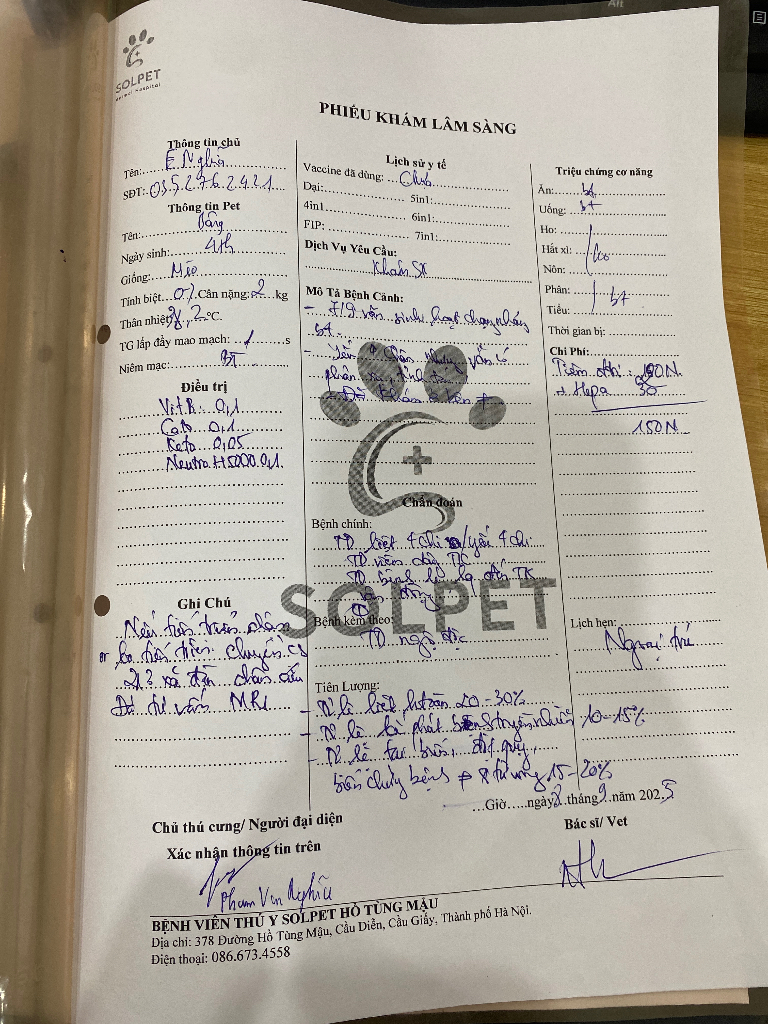 SOLPET
animal hospital
PHIẾU KHÁM LÂM SÀNG
Thông tin chủ
Tên: E Nghĩa
SĐT: 035.276.2421
Thông tin Pet
Tên:
Ngày sinh: 4th
Giống: Mèo
Tính biệt: ♂ Cân nặng: 2 kg
Thân nhiệt: 38,2 °C.
TG lấp đầy mao mạch: 1 s
Niêm mạc: BT
Điều trị
Vit B: 0,1
Cato 0,1
Keto 0,05
Neutro H5000 0,1.
Ghi Chú
Nếu tiến triển chậm
or ko tiến triển chuyển CS
2, 3
Đã tư vấn MRI
Lịch sử y tế
Vaccine đã dùng: Chưa
Dại: 5in1:
4in1 6in1:
FIP: 7in1:
Dịch Vụ Yêu Cầu:
Khám SK
Mô Tả Bệnh Cảnh:
- 7/9 vẫn sinh hoạt chạy nhảy
bt.
- Yếu 4 chân nhưng vẫn có
phản xạ,
Chẩn đoán
Bệnh chính:
TD liệt 4 chi /yếu 4 chi
TD viêm dây TK
TD bệnh lý lq đến TK
vận động
SOLPET
Bệnh kèm theo:
TD ngộ độc
Tiên Lượng:
- Tỉ lệ liệt 20 - 30%
- Tỉ lệ tái phát 10 - 15%
- Tỉ lệ tai biến, đột quỵ,
biến chứng bệnh tử vong 15 - 20%
Triệu chứng cơ năng
Ăn: bt
Uống: bt
Ho:
Hắt xì: ko
Nôn:
Phân: bt
Tiểu:
Thời gian bị:
Chi Phí:
Tiêm đtrị: 120N
+ Hepa 30
150N
Lịch hẹn:
Ngoại trú
Giờ.....ngày 8 tháng 9 năm 2025
Chủ thú cưng/ Người đại diện
Xác nhận thông tin trên
Phạm Văn Nghĩa
Bác sĩ/ Vet
BỆNH VIỆN THÚ Y SOLPET HỒ TÙNG MẬU
Địa chỉ: 378 Đường Hồ Tùng Mậu, Cầu Diễn, Cầu Giấy, Thành phố Hà Nội.
Điện thoại: 086.673.4558